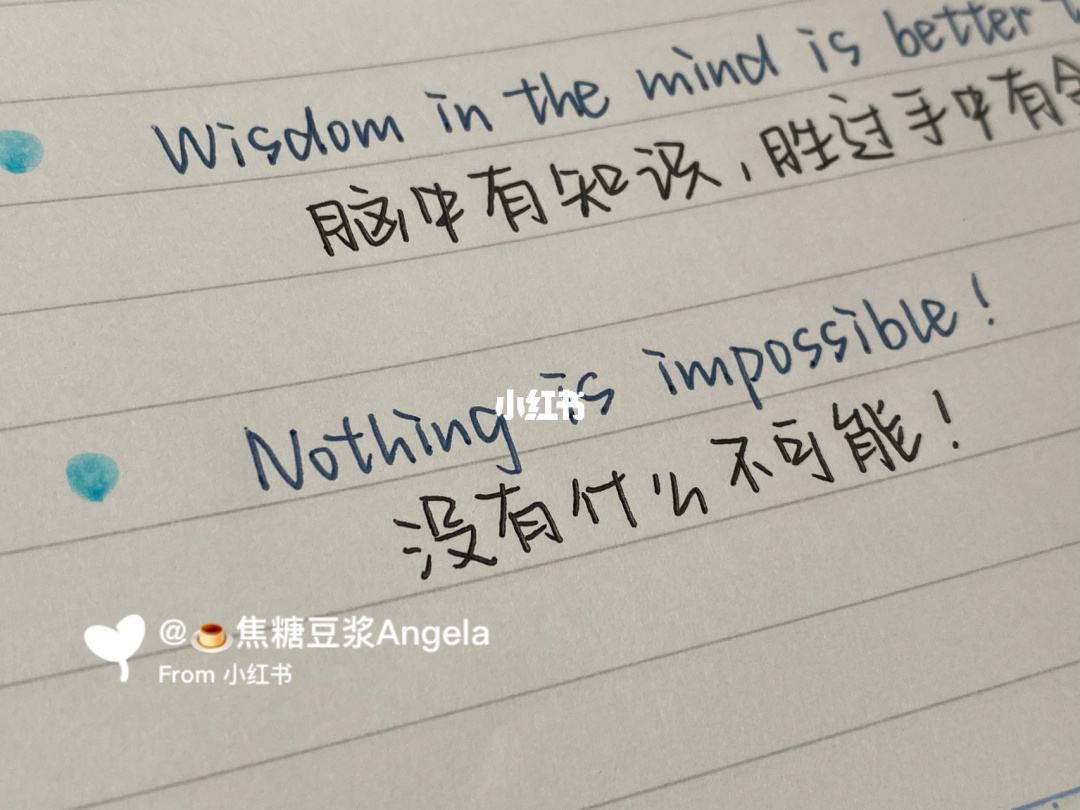 Wisdom in the mind is better
脑中有知识，胜过手中有
Nothing is impossible!
小红书
没有什么不可能！
@🍮焦糖豆浆Angela
From 小红书